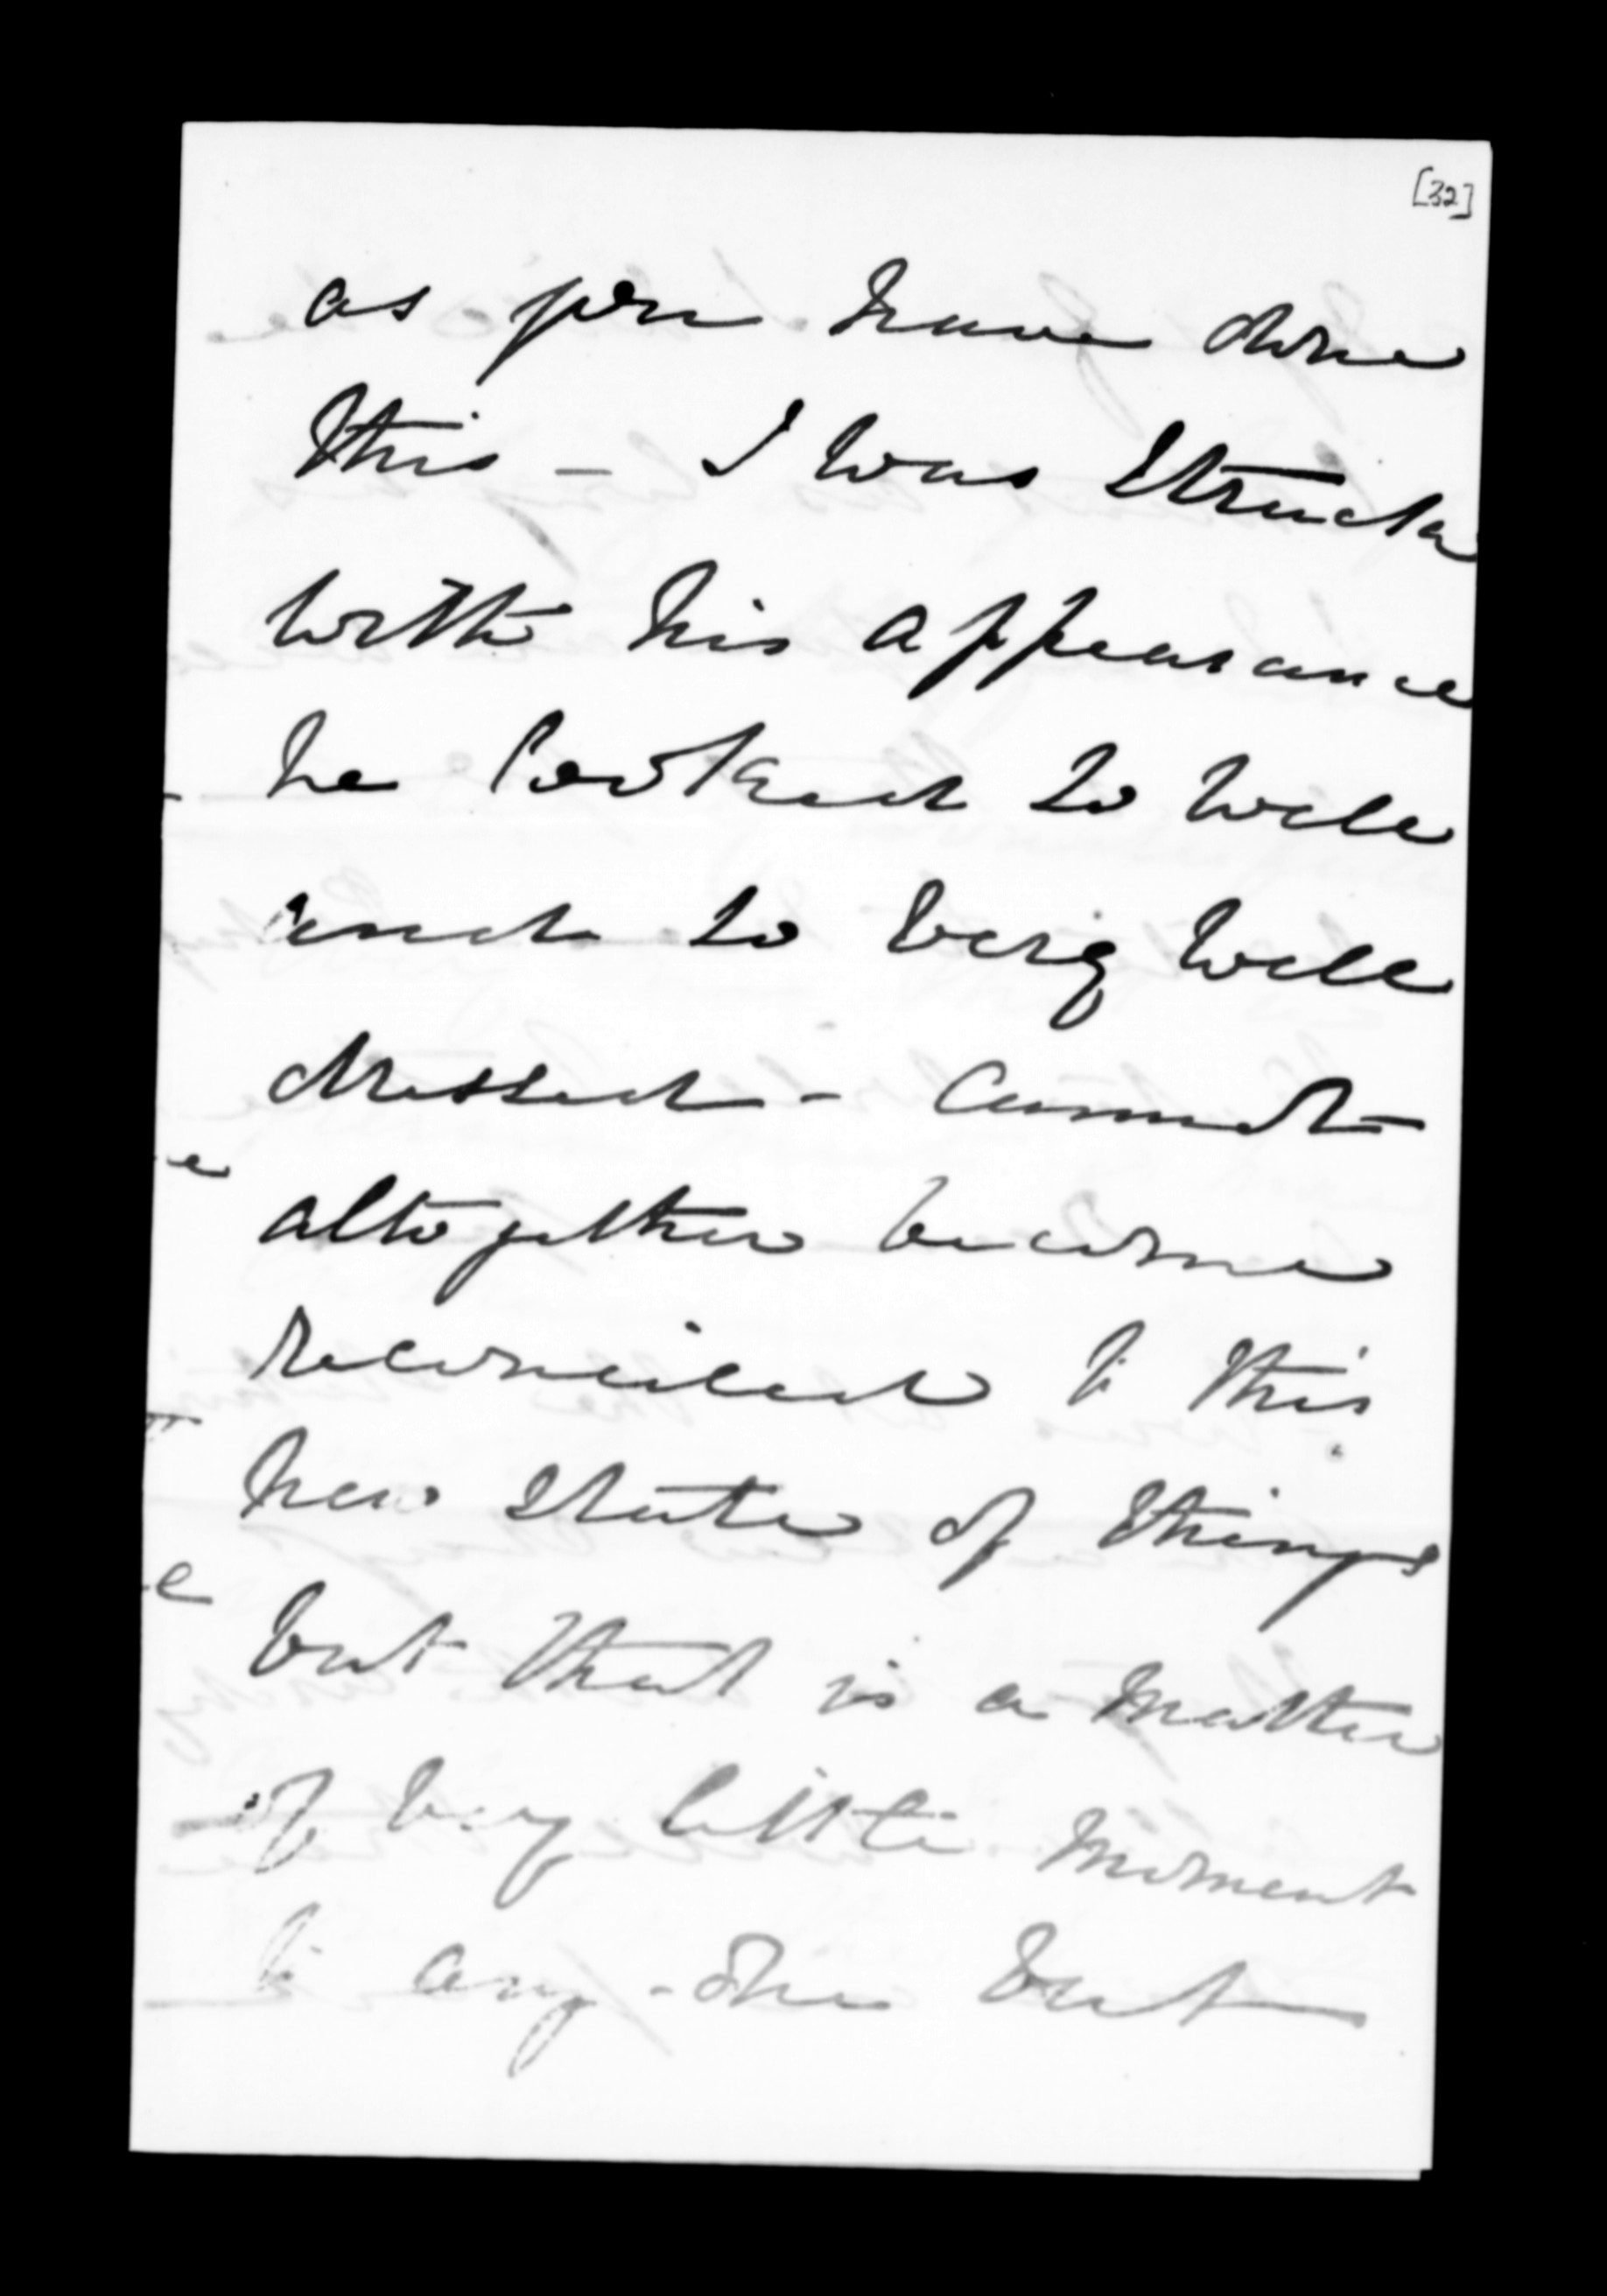 [32]
as you have done
this - I was struck
with his appearance
he looked so well
and so very well
dressed - Cannot
altogether become
reconciled to this
new state of things
but that is a matter
of very little moment
to any-one but